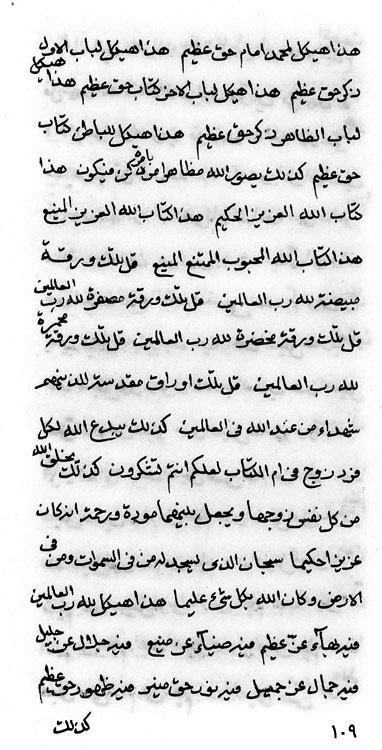 هذا هيكل لمحمد امام حق عظيم هذا هيكل لباب الاول
ذكر حق عظيم هذا هيكل لباب الاخر كتاب حق عظيم هذا هيكل
لباب الظاهر ذكر حق عظيم هذا هيكل للباطن كتاب
حق عظيم كذلك يصور الله مظاهر امره بامره كن فيكون هذا
كتاب الله العزيز الحكيم هذا كتاب الله العزيز المنيع
هذا كتاب الله المحبوب الممتنع المنيع قل تلك ورقة
مبيضة لله رب العالمين قل تلك ورقة مصفرة لله رب العالمين
قل تلك ورقة مخضرة لله رب العالمين قل تلك ورقة محمرة
لله رب العالمين قل تلك اوراق مقدسة
شهداء من عند الله فى العالمين كذلك يبدع الله لكل
فرد زوج فى ام الكتاب لعلكم انتم تتذكرون كذلك يخلق الله
من كل نفس زوجها ويجعل بينهما مودة ورحمة انه كان
عزيزا حكيما سبحان الذى يسجد له من فى السموات ومن فى
الارض وكان الله بكل شىء عليما هذا هيكل لله رب العالمين
فيه بهاء عن عظيم فيه ضياء عن منيع فيه جلال عن جليل
فيه جمال عن جميل فيه نور حق مبين فيه ظهور حق عظيم
١٠٩ كذلك